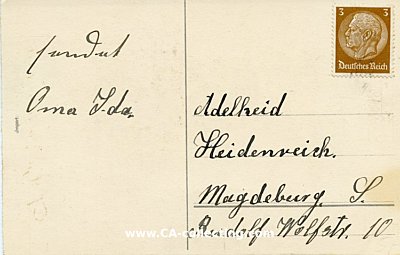 sendet
Oma Ida.
3 3
Deutsches Reich
Adelheid
Heidenreich.
Magdeburg. S.
Rudolf Wolfstr. 10
www.CA-collection.com